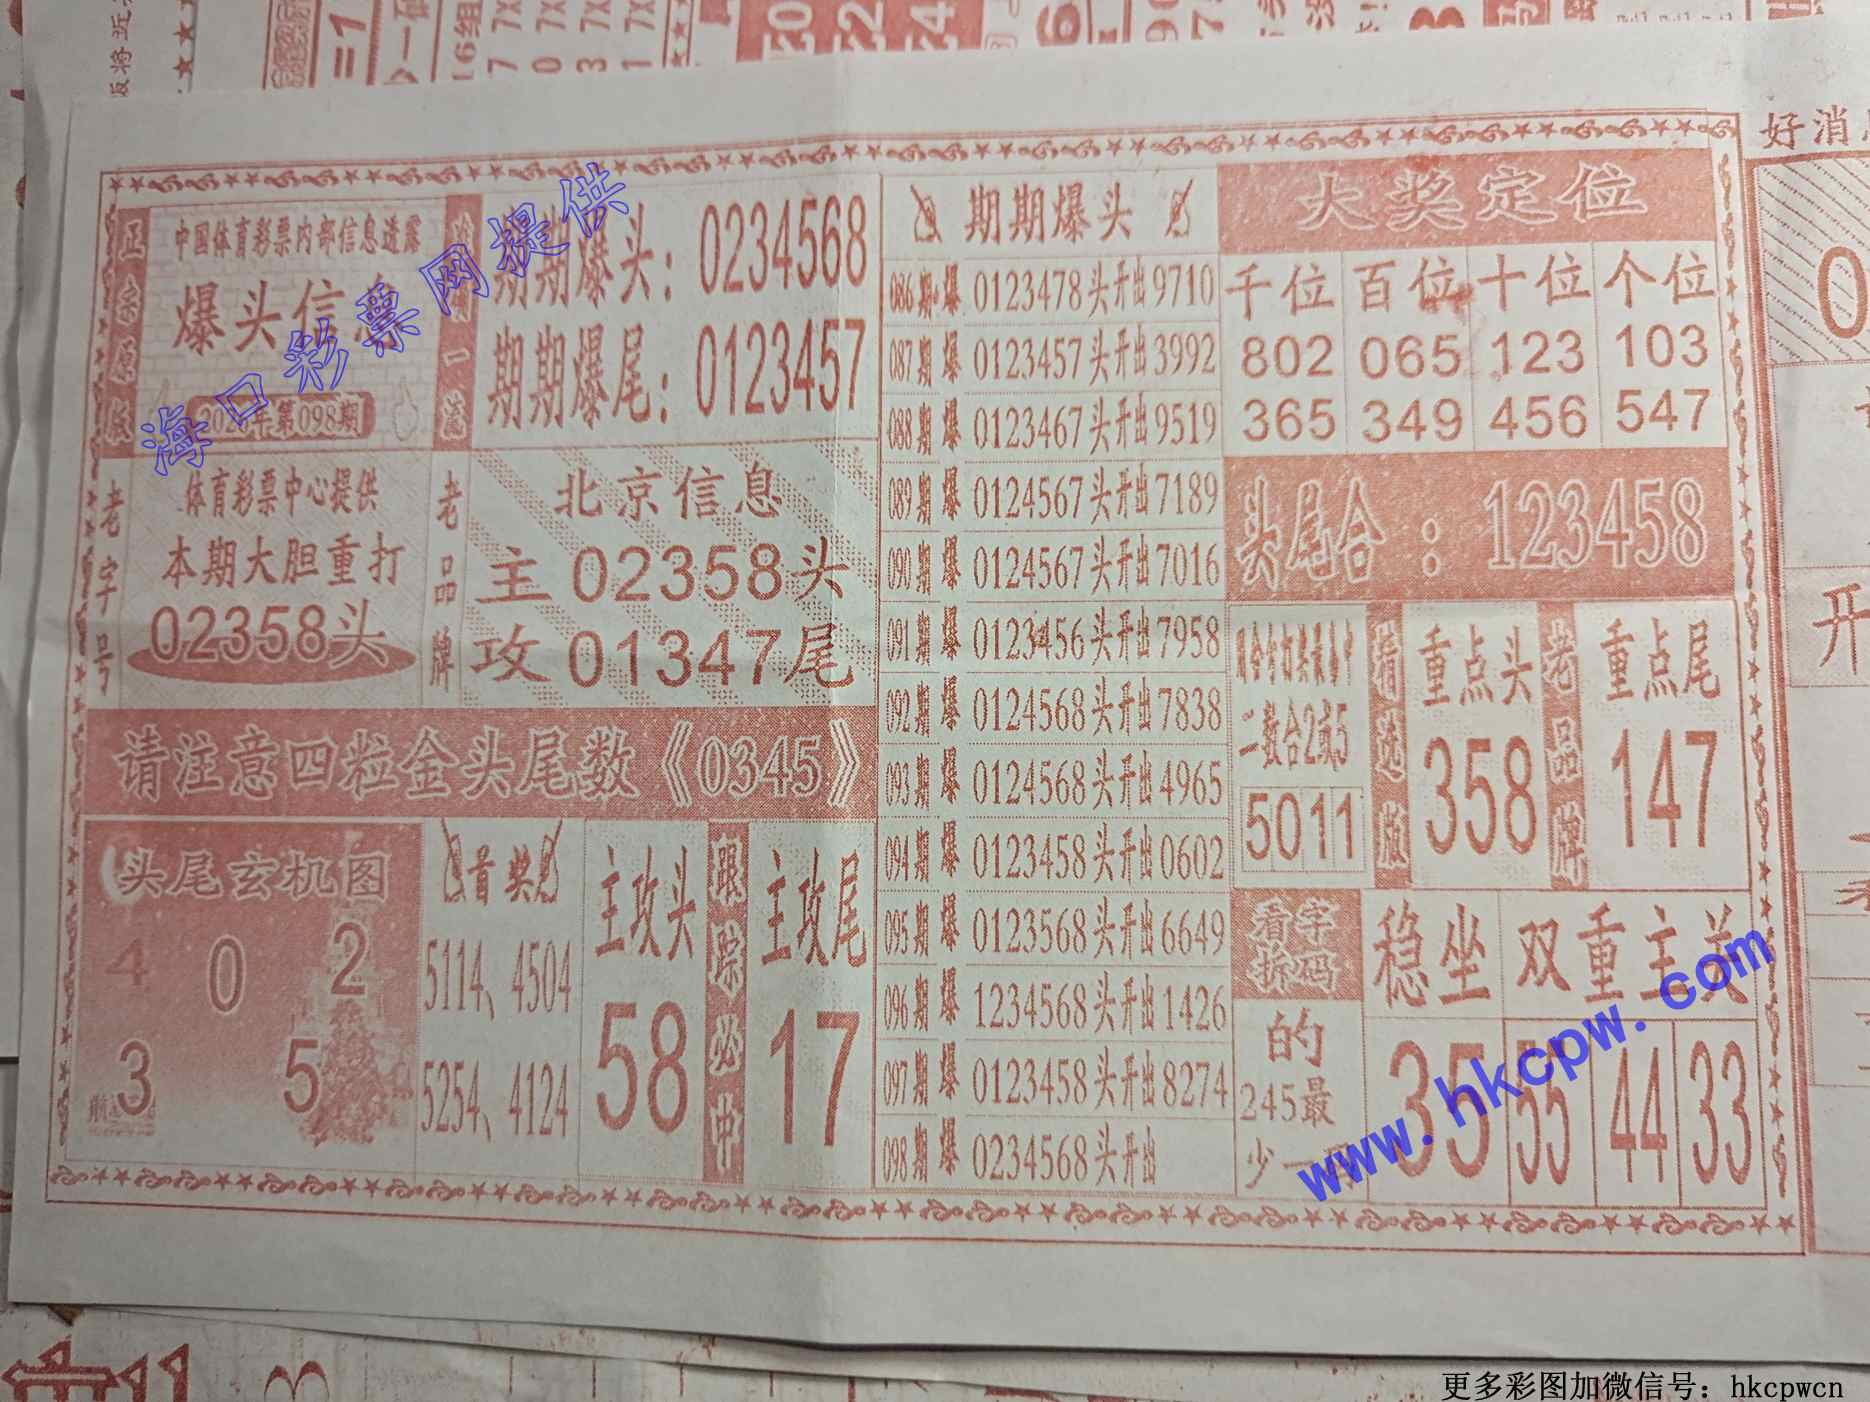 正宗原版
中国体育彩票内部信息透露
爆头信息
第098期
一流
期期爆头：0234568
期期爆尾：0123457
老字号
体育彩票中心提供
本期大胆重打
02358头
老品牌
北京信息
主02358头
攻01347尾
请注意四粒金头尾数《0345》
头尾玄机图
4 0 2
3 5
首奖
5114、4504
5254、4124
主攻头
58
跟踪必中
主攻尾
17
期期爆头
086期 爆 0123478头开出9710
087期 爆 0123457头开出3992
088期 爆 0123467头开出9519
089期 爆 0124567头开出7189
090期 爆 0124567头开出7016
091期 爆 0123456头开出7958
092期 爆 0124568头开出7838
093期 爆 0124568头开出4965
094期 爆 0123458头开出0602
095期 爆 0123568头开出6649
096期 爆 1234568头开出1426
097期 爆 0123458头开出8274
098期 爆 0234568头开出
大奖定位
千位 百位 十位 个位
802 065 123 103
365 349 456 547
头尾合：123458
二数合2或5
5011
精选版
重点头
358
老品牌
重点尾
147
看字拆码
的
245最
少一
稳坐
35
双重主关
55 44 33
好消
开
海口彩票网提供
www.hkcpw.com
更多彩图加微信号：hkcpwcn